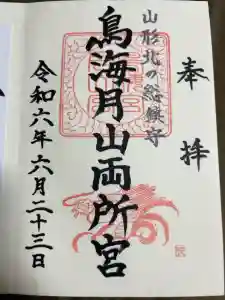 奉拝
山形北の総鎮守
鳥海月山両所宮
令和六年六月二十三日